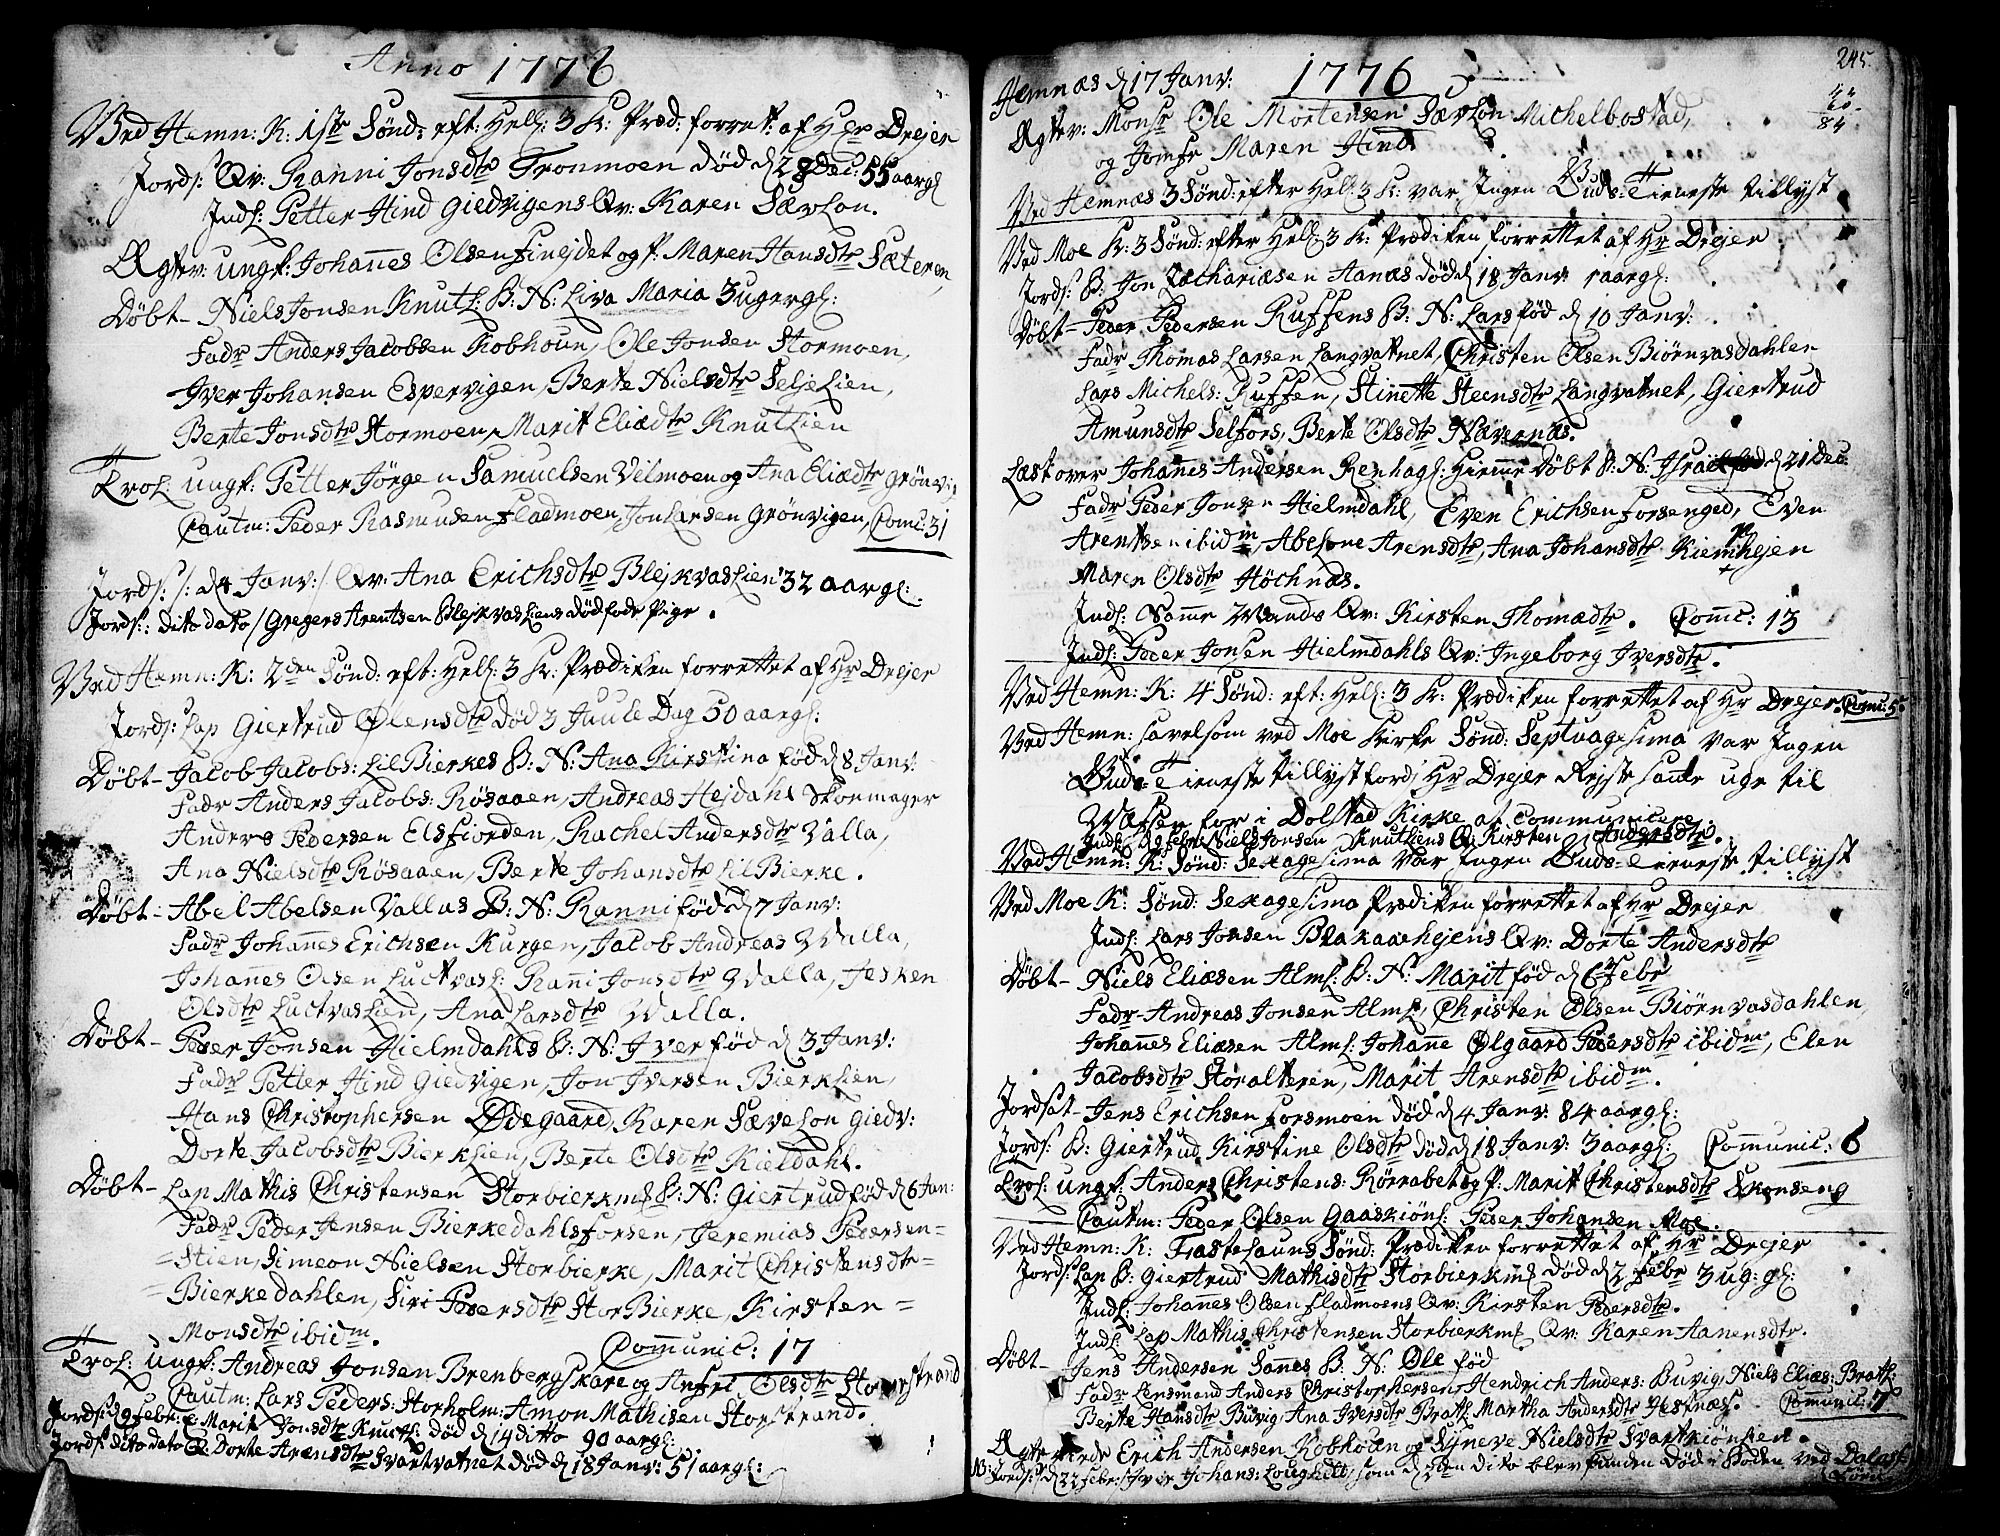 Anno 1776
Ved Hemn: K: 1ste Sønd: eft: Hell: 3 K: Præd: forrett: af Hr Drejer
Jords: Qv: Ranni Jonsdtr Tronmoen død d 28 Dec: 55 aargl
Indl: Petter Hind Giedvigens Qv: Karen Sævson.
Ægtev: ungk: Johañes Olsen Finejdet og p: Maren Hansdtr Sæteren,
Døbt – Niels Jonsen Knutl: B: N: Liva Maria 3 ugergl:
Fadr Anders Jacobsen Kobhoun, Ole Jonsen Stormoen,
Iver Johansen Espervigen, Berte Nielsdtr Seljelien,
Berte Jonsdtr Stormoen, Marit Eliædtr Knutlien
Trol: ungk: Petter Jørgen Samuelsen Vilmoen og Ana Eliædtr Grønvi:
Cautm: Peder Rasmusen Fladmoen, Jon Larsen Grønvigen, Comc: 31
Jords: /: d 4 Janv: / Qv: Ana Erichsdtr Blejkvaslien 32 aargl:
Jords: dito dato / Gregers Arentsen Blejkvasliens dødfødde Pige.
Ved Hemn: K: 2den Sønd: eft: Hell: 3 K: Prædiken forrettet af Hr Drejer
Jords: Lap Giertrud Olensdtr død 3 Juule Dag 50 aargl:
Døbt – Jacob Jacobs: Lil Bierkes B: N: Ana Kirstina fød d 8 Janv:
Fadr Anders Jacobs: Røsaaen, Andreas Hejdahl Skoemager
Anders Pedersen Elsfiorden, Rachel Andersdtr Valla,
Ana Nielsdtr Røsaaen, Berte Johansdtr Lil Bierke.
Døbt – Abel Abelsen Vallas B: N: Ranni fød d 7 Janv:
Fadr Johañes Erichsen Kurgen, Jacob Andreas Valla,
Johañes Olsen Luctvasl: Rañi Jonsdtr Walla, Jesken
Olsdtr Luctvaslien, Ana Larsdtr Walla.
Døbt – Peder Jonsen Hielmdahls B: N: Iver fød d 3 Janv:
Fadr Petter Hind Giedvigen, Jon Iversen Bierklien,
Hans Christophersen Ødegaard, Karen Sæveson Giedv:
Dorte Jacobsdtr Bierklien, Berte Olsdtr Kieldahl.
Døbt – Lap Mathis Christensen Storbierkms B: N: Giertrud fød d 6 Jan:
Fadr Peder Jensen Bierkedahlsforsen, Jeremias Pedersen =
= Stien, Simeon Nielsen Storbierke, Marit Christensdtr =
= Bierkedahlen, Siri Pedersdtr Stor Bierke, Kirsten =
Monsdtr ibidm. Comunic: 17
Trol: ungk: Andreas Jonsen Brenbergskare og Olsdtr Storstrand
Cautm: Lars Peders: Storholm: Amon Mathisen Storstrand.
Jords: d 9 Febr: Marit Jonsdtr Knutl: død d 14 ditto 90 aargl:
Jords dito dato Dorte Arensdtr Svartvatnet død d 18 Janv: 51 aargl:
245.
84
Hemnæs d 17 Janv: 1776
Ægtev: Monsr Ole Mortensen Sævson Michelbostad,
og Jomfr Maren Hind
Ved Hemnæs 3 Sønd: efter Hell: 3 K: var Ingen Guds = Tieneste tillyst
Ved Moe K: 3 Sønd: efter Hell: 3 K: Prædiken forrettet af Hr Drejer
Jords: B: Jon Zachariæsen Aanæs død d 18 Janv: 1 aargl:
Døbt – Peder Pedersen Ruffens B: N: Lars fød d 10 Janv:
Fadr Thomas Larsen Langvatnet, Christen Olsen Biørnvasdahlen
Lars Michels: Ruffen, Stinette Steensdtr Langvatnet, Giertrud
Amunsdtr Selfors, Berte Olsdtr Nævernæs.
Læst over Johañes Andersen Renhagl: Hieme Døbt B: N: Israel fød d 21 Dec:
Fadr Peder Jonsen Hielmdahl, Even Erichsen Forsenged, Even
Arentsen ibidm, Abelone Arensdtr, Ana Johansdtr
Maren Olsdtr Høchnæs.
Indl: Same Mands Qv: Kirsten Thomædtr. Comc: 13
Indl: Peder Jonsen Hielmdahls Qv: Ingeborg Iversdtr.
Ved Hemn: K: 4 Sønd: eft: Hell: 3 K: Prædiken forrettet af Hr Drejer. Comc: 5
Ved Hemn: saavelsom ved Moe Kirke Sønd: Septuagesima var Ingen
Guds = Tieneste tillyst fordi Hr Drejer Rejste same uge til
Wefsen for i Dolstad Kirke at Communicere.
Indl: Niels Jonsen Knutliens Qv: Kirsten Andersdtr.
Ved Hemn: K: Sønd: Sexagesima var Ingen Guds = Tieneste tillyst
Ved Moe K: Sønd: Sexagesima Prædiken forrettet af Hr Drejer
Indl: Lars Jonsen Blakaahejens Qv: Dorte Andersdtr
Døbt – Niels Eliæsen Alml: B: N: Marit fød d 6 Febr
Fadr Andreas Jonsen Alml: Christen Olsen Biørnvasdahlen,
Johañes Eliæsen Alml: Johañe Ølgaard Pedersdtr ibidm, Elen
Jacobsdtr Storalteren, Marit Arensdtr ibidm.
Jordsat – Jens Erichsen Forsmoen død d 4 Janv: 84 aargl:
Jords: B: Giertrud Kirstine Olsdtr død d 18 Janv: 3 aargl: Comunic: 6
Trol: ungk: Anders Christens: Rørrabet og p: Marit Christensdtr Skonseng
Cautm: Peder Olsen Gaaskiønl: Peder Johansen Moe.
Ved Hemn: K: Fastelauns Sønd: Prædiken forrettet af Hr Drejer
Jords: Lap B: Giertrud Mathisdtr Storbierkms død d 2 Febr 3 ug: gl:
Indl: Johañes Olsen Fladmoens Qv: Kirsten Pedersdtr.
Indl: Lap Mathis Christensen Storbierkms Qv: Karen Aanensdtr.
Døbt – Jens Andersen Sañes B: N: Ole fød
Fadr Lensmand Anders Christophersen, Hendrich Anders: Buvig, Niels Eliæs: Bratl:
Berte Hansdtr Buvig, Ana Iversdtr Bratl: Martha Andersdtr Hestnæs. Comunic: 7
Ægteviede Erich Andersen Kobhoun og Syneve Nielsdtr Svartkiønlien.
Jords: d 22 Febr: Iver Johans: som d dito blev funden død i Boden ved Dalas: